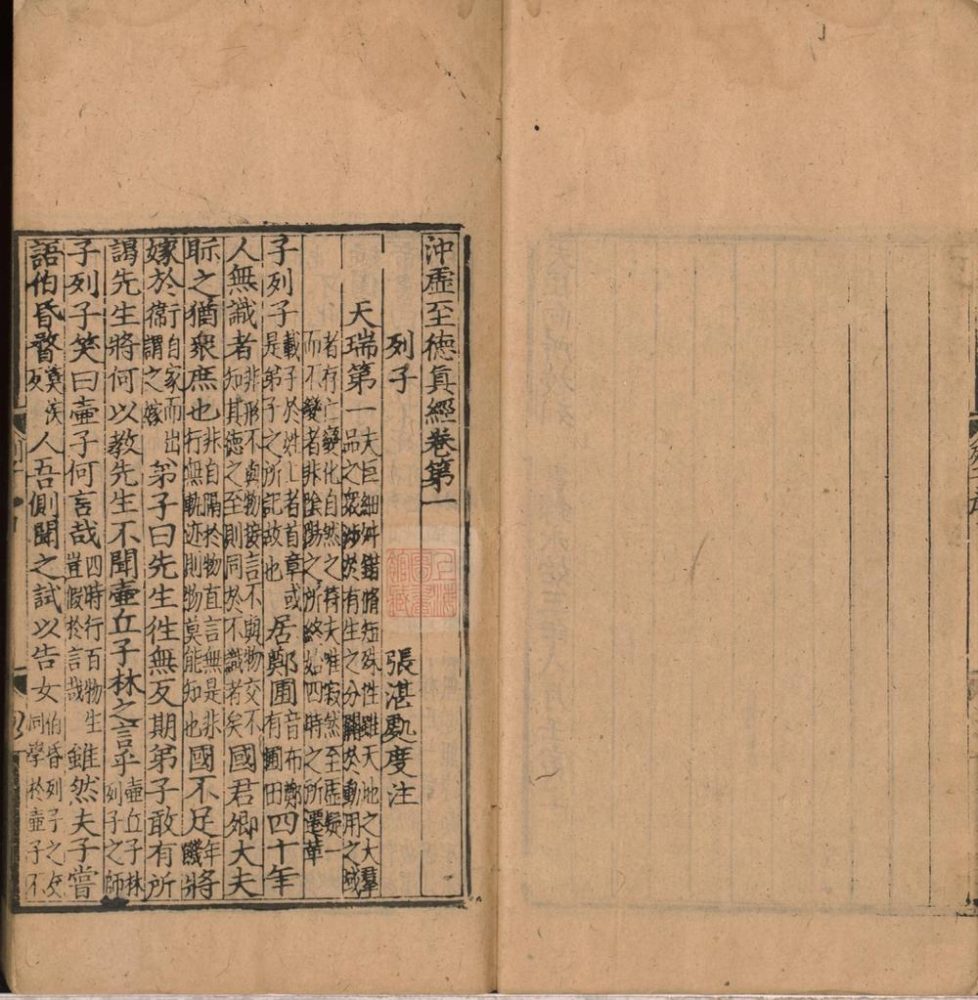 沖虛至德眞經卷第一
列子 張湛處度注
天瑞第一 夫巨細舛錯脩短殊性雖天地之大羣品之衆涉於有生之分關於動用之域者存亡變化自然之符夫唯寂然至虛凝一而不變者非陰陽之所終始四時之所遷革
子列子 載子於姓上者首章或是弟子之所記故也 居鄭圃 音布鄭有圃田 四十年
人無識者 非形不與物接言不與物交不知其德之至則同於不識者矣 國君卿大夫
眎之猶衆庶也 非自隔於物直言無是非行無軌迹則物莫能知也 國不足 年饑 將
嫁於衞 自家而出謂之嫁 弟子曰先生往無反期弟子敢有所
謁先生將何以教先生不聞壷丘子林之言乎 壷丘子林列子之師
子列子笑曰壷子何言哉 四時行百物生豈假於言哉 雖然夫子嘗
語伯昏瞀 莫侯反 人吾側聞之試以告女 伯昏列子之友同學於壷子不